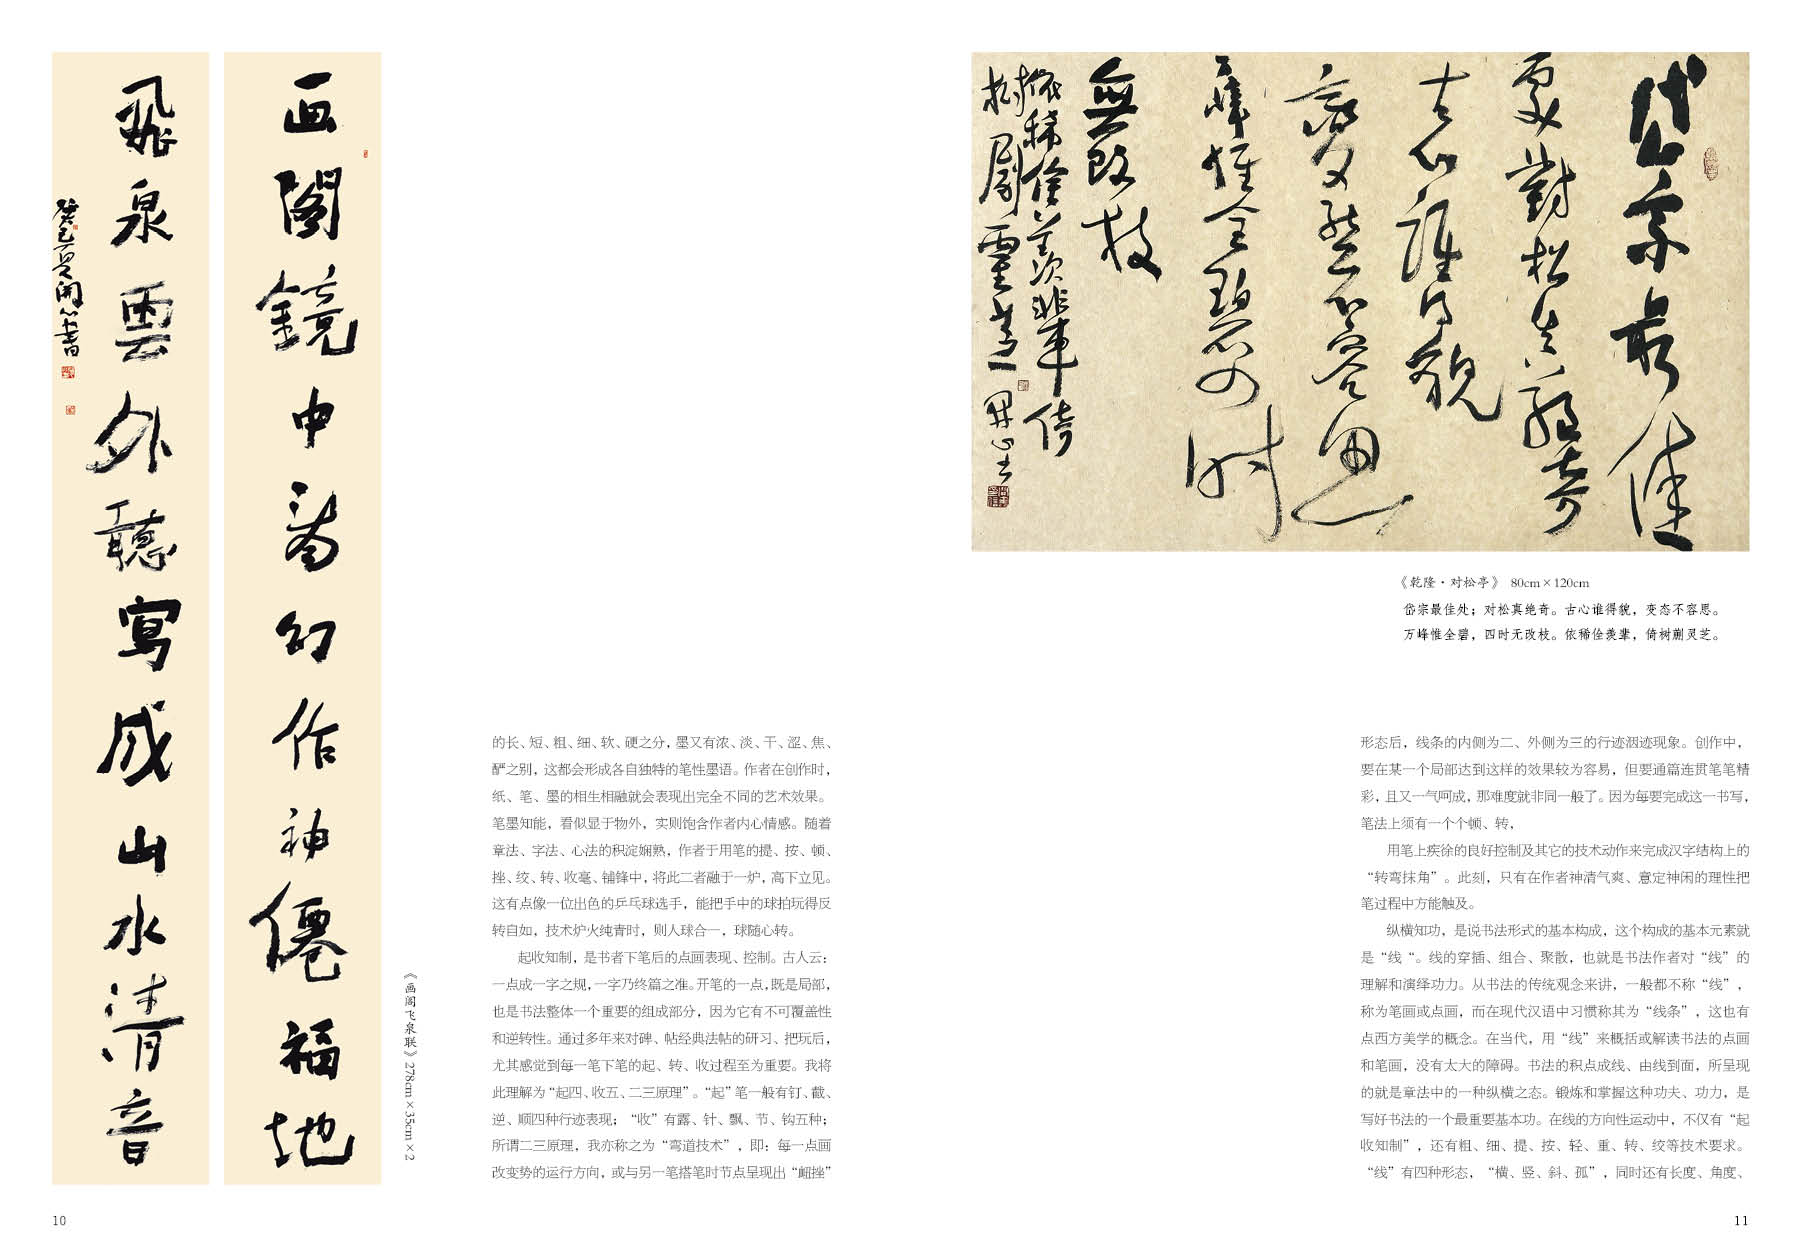 画阁镜中看幻作神僊福地
飛泉雲外聽寫成山水清音
癸巳夏開心書
《画阁飞泉联》278cm×35cm×2
的长、短、粗、细、软、硬之分，墨又有浓、淡、干、涩、焦、
酽之别，这都会形成各自独特的笔性墨语。作者在创作时，
纸、笔、墨的相生相融就会表现出完全不同的艺术效果。
笔墨知能，看似显于物外，实则饱含作者内心情感。随着
章法、字法、心法的积淀娴熟，作者于用笔的提、按、顿、
挫、绞、转、收毫、铺锋中，将此二者融于一炉，高下立见。
这有点像一位出色的乒乓球选手，能把手中的球拍玩得反
转自如，技术炉火纯青时，则人球合一，球随心转。
起收知制，是书者下笔后的点画表现、控制。古人云：
一点成一字之规，一字乃终篇之准。开笔的一点，既是局部，
也是书法整体一个重要的组成部分，因为它有不可覆盖性
和逆转性。通过多年来对碑、帖经典法帖的研习、把玩后，
尤其感觉到每一笔下笔的起、转、收过程至为重要。我将
此理解为“起四、收五、二三原理”。“起”笔一般有钉、截、
逆、顺四种行迹表现；“收”有露、针、飘、节、钩五种；
所谓二三原理，我亦称之为“弯道技术”，即：每一点画
改变势的运行方向，或与另一笔搭笔时节点呈现出“衄挫”
10
岱宗最佳
處對松真絕奇
古心誰得貌
變態不容思
萬峰惟全碧四時
無改枝
依稀佺羨輩倚
樹劚靈芝 開心書
《乾隆·对松亭》 80cm×120cm
岱宗最佳处；对松真绝奇。古心谁得貌，变态不容思。
万峰惟全碧，四时无改枝。依稀佺羡辈，倚树劚灵芝。
形态后，线条的内侧为二、外侧为三的行迹洇迹现象。创作中，
要在某一个局部达到这样的效果较为容易，但要通篇连贯笔笔精
彩，且又一气呵成，那难度就非同一般了。因为每要完成这一书写，
笔法上须有一个个顿、转，
用笔上疾徐的良好控制及其它的技术动作来完成汉字结构上的
“转弯抹角”。此刻，只有在作者神清气爽、意定神闲的理性把
笔过程中方能触及。
纵横知功，是说书法形式的基本构成，这个构成的基本元素就
是“线“。线的穿插、组合、聚散，也就是书法作者对“线”的
理解和演绎功力。从书法的传统观念来讲，一般都不称“线”，
称为笔画或点画，而在现代汉语中习惯称其为“线条”，这也有
点西方美学的概念。在当代，用“线”来概括或解读书法的点画
和笔画，没有太大的障碍。书法的积点成线、由线到面，所呈现
的就是章法中的一种纵横之态。锻炼和掌握这种功夫、功力，是
写好书法的一个最重要基本功。在线的方向性运动中，不仅有“起
收知制”，还有粗、细、提、按、轻、重、转、绞等技术要求。
“线”有四种形态，“横、竖、斜、孤”，同时还有长度、角度、
11